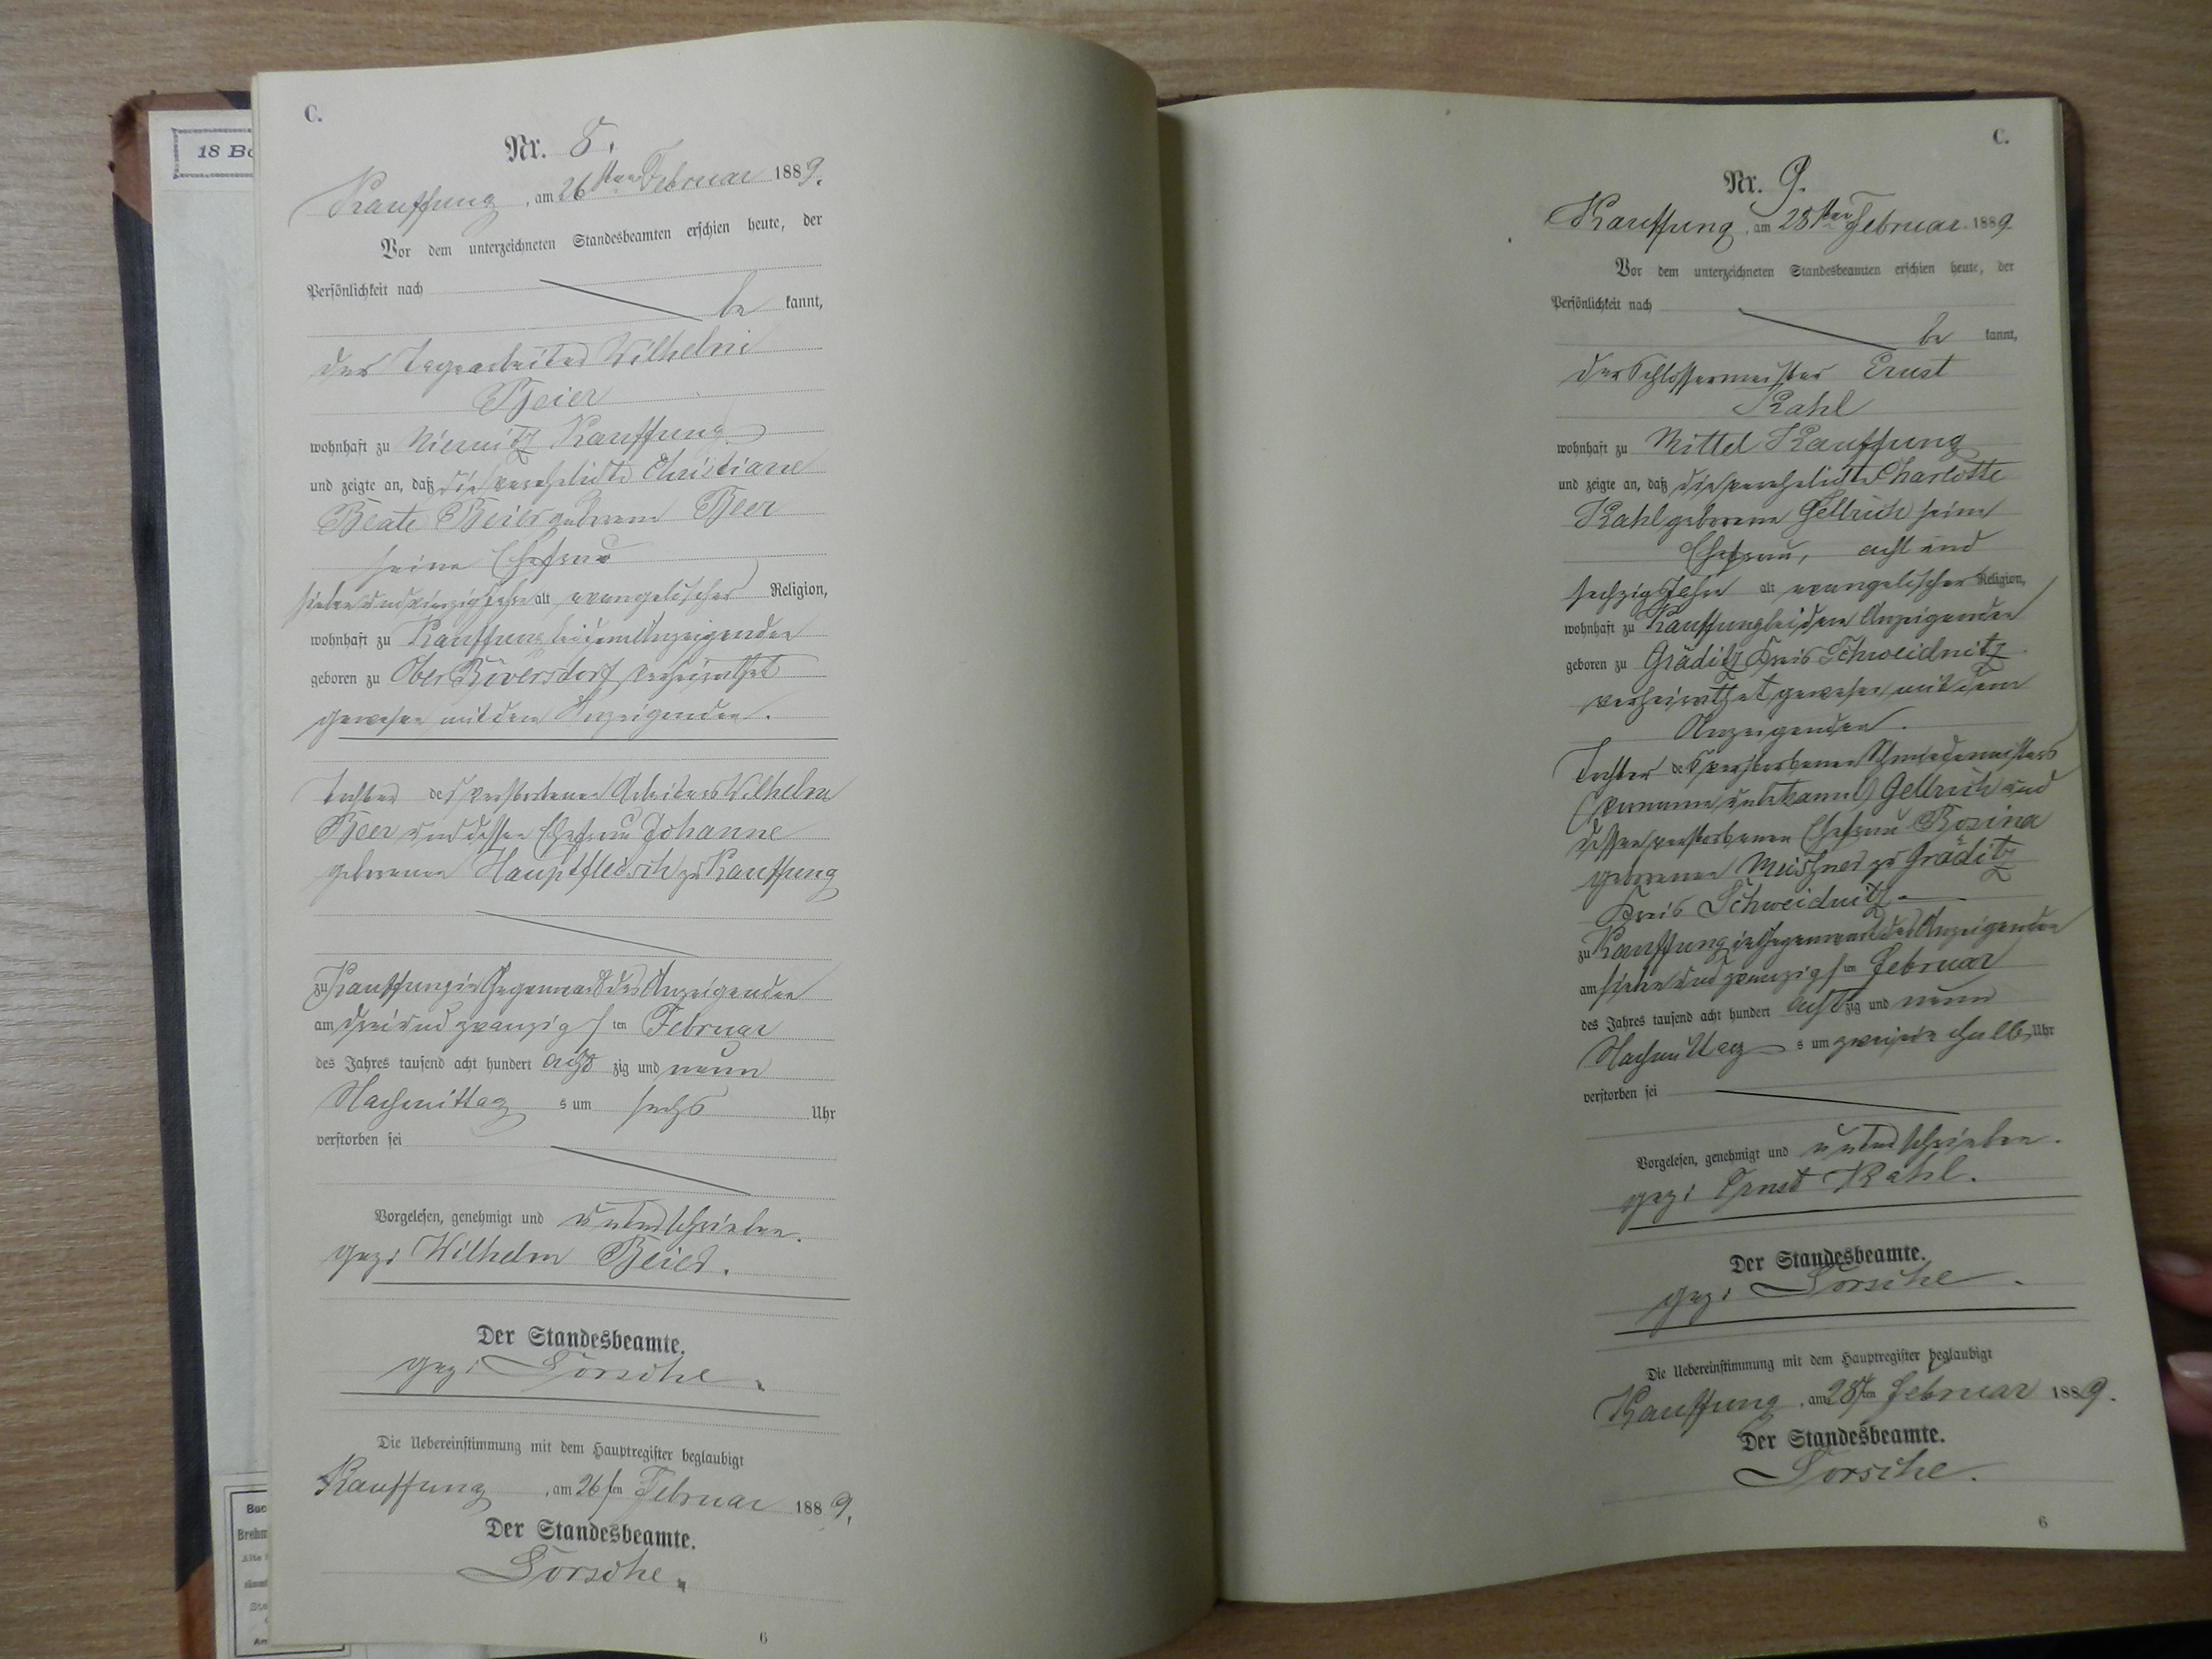 18 Bo
C.
Nr. 8.
Kauffung, am 26ten Februar 1889.
Vor dem unterzeichneten Standesbeamten erschien heute, der
Persönlichkeit nach
be kannt,
der Tagearbeiter Wilhelm
Beier
wohnhaft zu Kauffung
und zeigte an, daß die verehelichte Christiane
Beate Beier geborene Beer
seine Ehefrau
sieben und vierzig Jahre alt evangelischer Religion,
wohnhaft zu Kauffung bei dem Anzeigenden
geboren zu Ober Röversdorf, verheirathet
gewesen mit dem Anzeigenden.
Tochter des verstorbenen Arbeiters Wilhelm
Beer und dessen Ehefrau Johanne
geborenen Hauptfleisch zu Kauffung
zu Kauffung in Gegenwart des Anzeigenden
am drei und zwanzigsten Februar
des Jahres tausend acht hundert achtzig und neun
Nachmittags um sechs Uhr
verstorben sei
Vorgelesen, genehmigt und unterschrieben.
gez: Wilhelm Beier.
Der Standesbeamte.
gez: Sorsche.
Die Uebereinstimmung mit dem Hauptregister beglaubigt
Kauffung, am 26ten Februar 1889.
Der Standesbeamte.
Sorsche.
6
C.
Nr. 9.
Kauffung, am 28ten Februar 1889
Vor dem unterzeichneten Standesbeamten erschien heute, der
Persönlichkeit nach
be kannt,
der Schlossermeister Ernst
Kahl
wohnhaft zu Mittel Kauffung
und zeigte an, daß die verehelichte Charlotte
Kahl geborene Gellrich seine
Ehefrau, acht und
sechzig Jahre alt evangelischer Religion,
wohnhaft zu Kauffung bei dem Anzeigenden
geboren zu Gräditz Kreis Schweidnitz
verheirathet gewesen mit dem
Anzeigenden.
Tochter des verstorbenen Schmiedemeisters
(Vorname unbekannt) Gellrich und
dessen verstorbenen Ehefrau Rosina
geborenen zu Gräditz
Kreis Schweidnitz.
zu Kauffung in Gegenwart des Anzeigenden
am sieben und zwanzigsten Februar
des Jahres tausend acht hundert achtzig und neun
Nachmittags um zwei ein halb Uhr
verstorben sei
Vorgelesen, genehmigt und unterschrieben.
gez: Ernst Kahl.
Der Standesbeamte.
gez: Sorsche.
Die Uebereinstimmung mit dem Hauptregister beglaubigt
Kauffung, am 28ten Februar 1889.
Der Standesbeamte.
Sorsche.
6